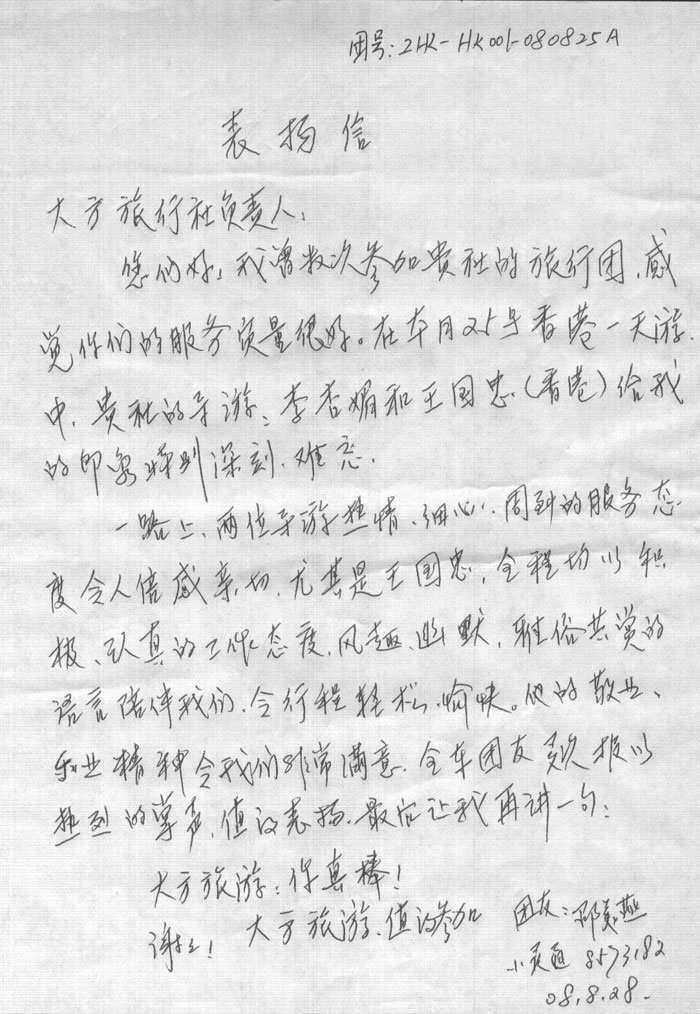 团号:ZHK-HK001-080825A
表扬信
大方旅行社负责人:
您们好,我曾数次参加贵社的旅行团,感
觉你们的服务质量很好。在本月25号香港一天游
中,贵社的导游:李杏媚和王国忠(香港)给我
的印象特别深刻、难忘.
一路上、两位导游热情、细心、周到的服务态
度令人倍感亲切,尤其是王国忠,全程均以积
极、认真的工作态度,风趣、幽默,雅俗共赏的
语言陪伴我们,令行程轻松、愉快。他的敬业、
专业精神令我们非常满意,全车团友 报以
热烈的掌声,值得表扬.最后让我再讲一句:
大方旅游:你真棒!
谢谢! 大方旅游、值得参加
团友:
小灵通 8573182
08.8.28.